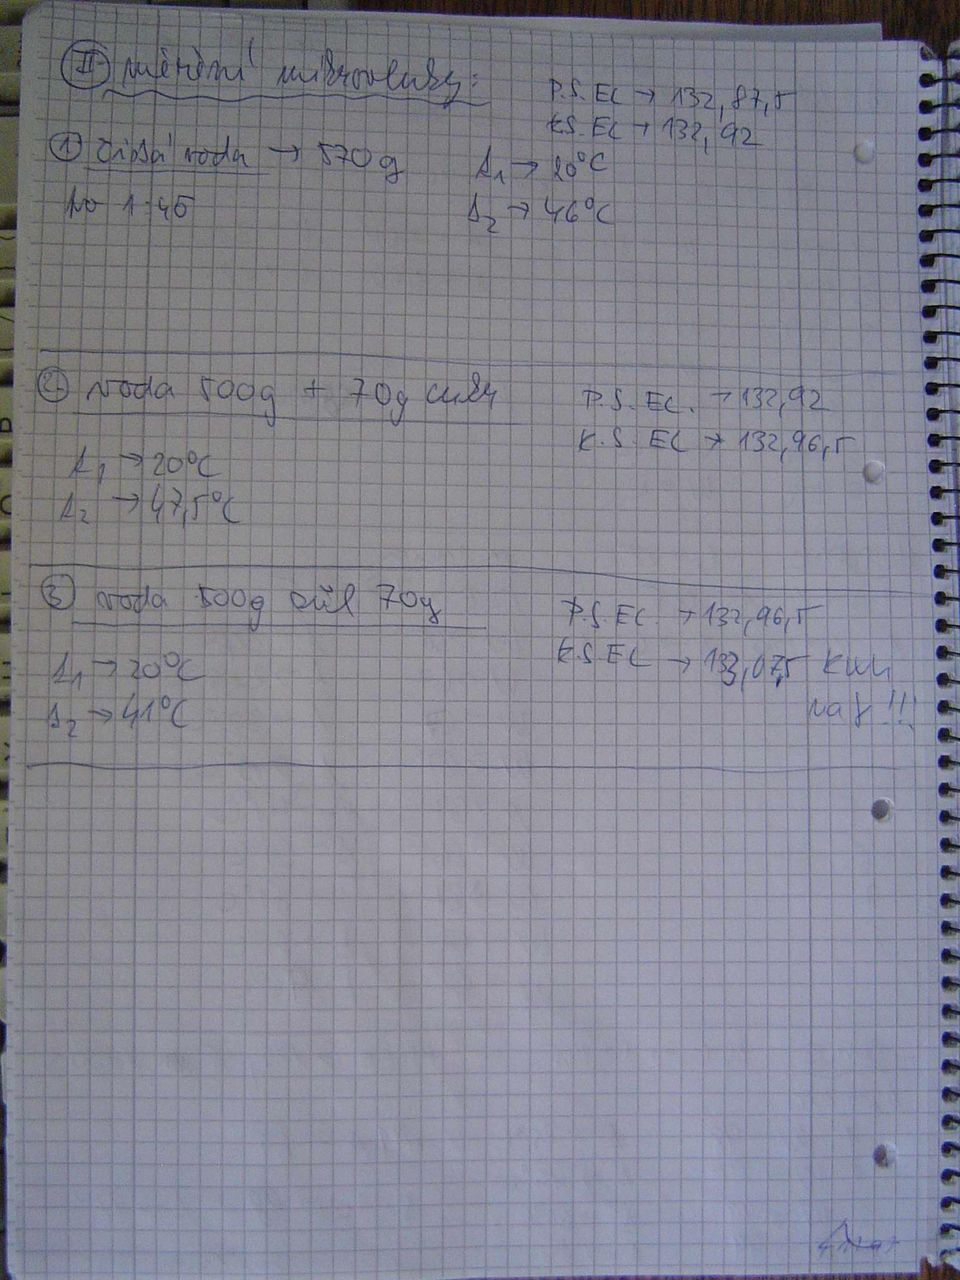 II měření mikrovlnky:
P.S. EC → 132,87,5
K.S. EC → 132,92
1 čistá voda → 570g
t1 → 20°C
t2 → 46°C
po 1:45
2 voda 500g + 70g cukr
P.S. EC. → 132,92
K.S. EC → 132,96,5
t1 → 20°C
t2 → 47,5°C
3 voda 500g sůl 70g
P.S. EC. → 132,96,5
K.S. EC → 133,07,5 KWh
t1 → 20°C
t2 → 41°C
!!!